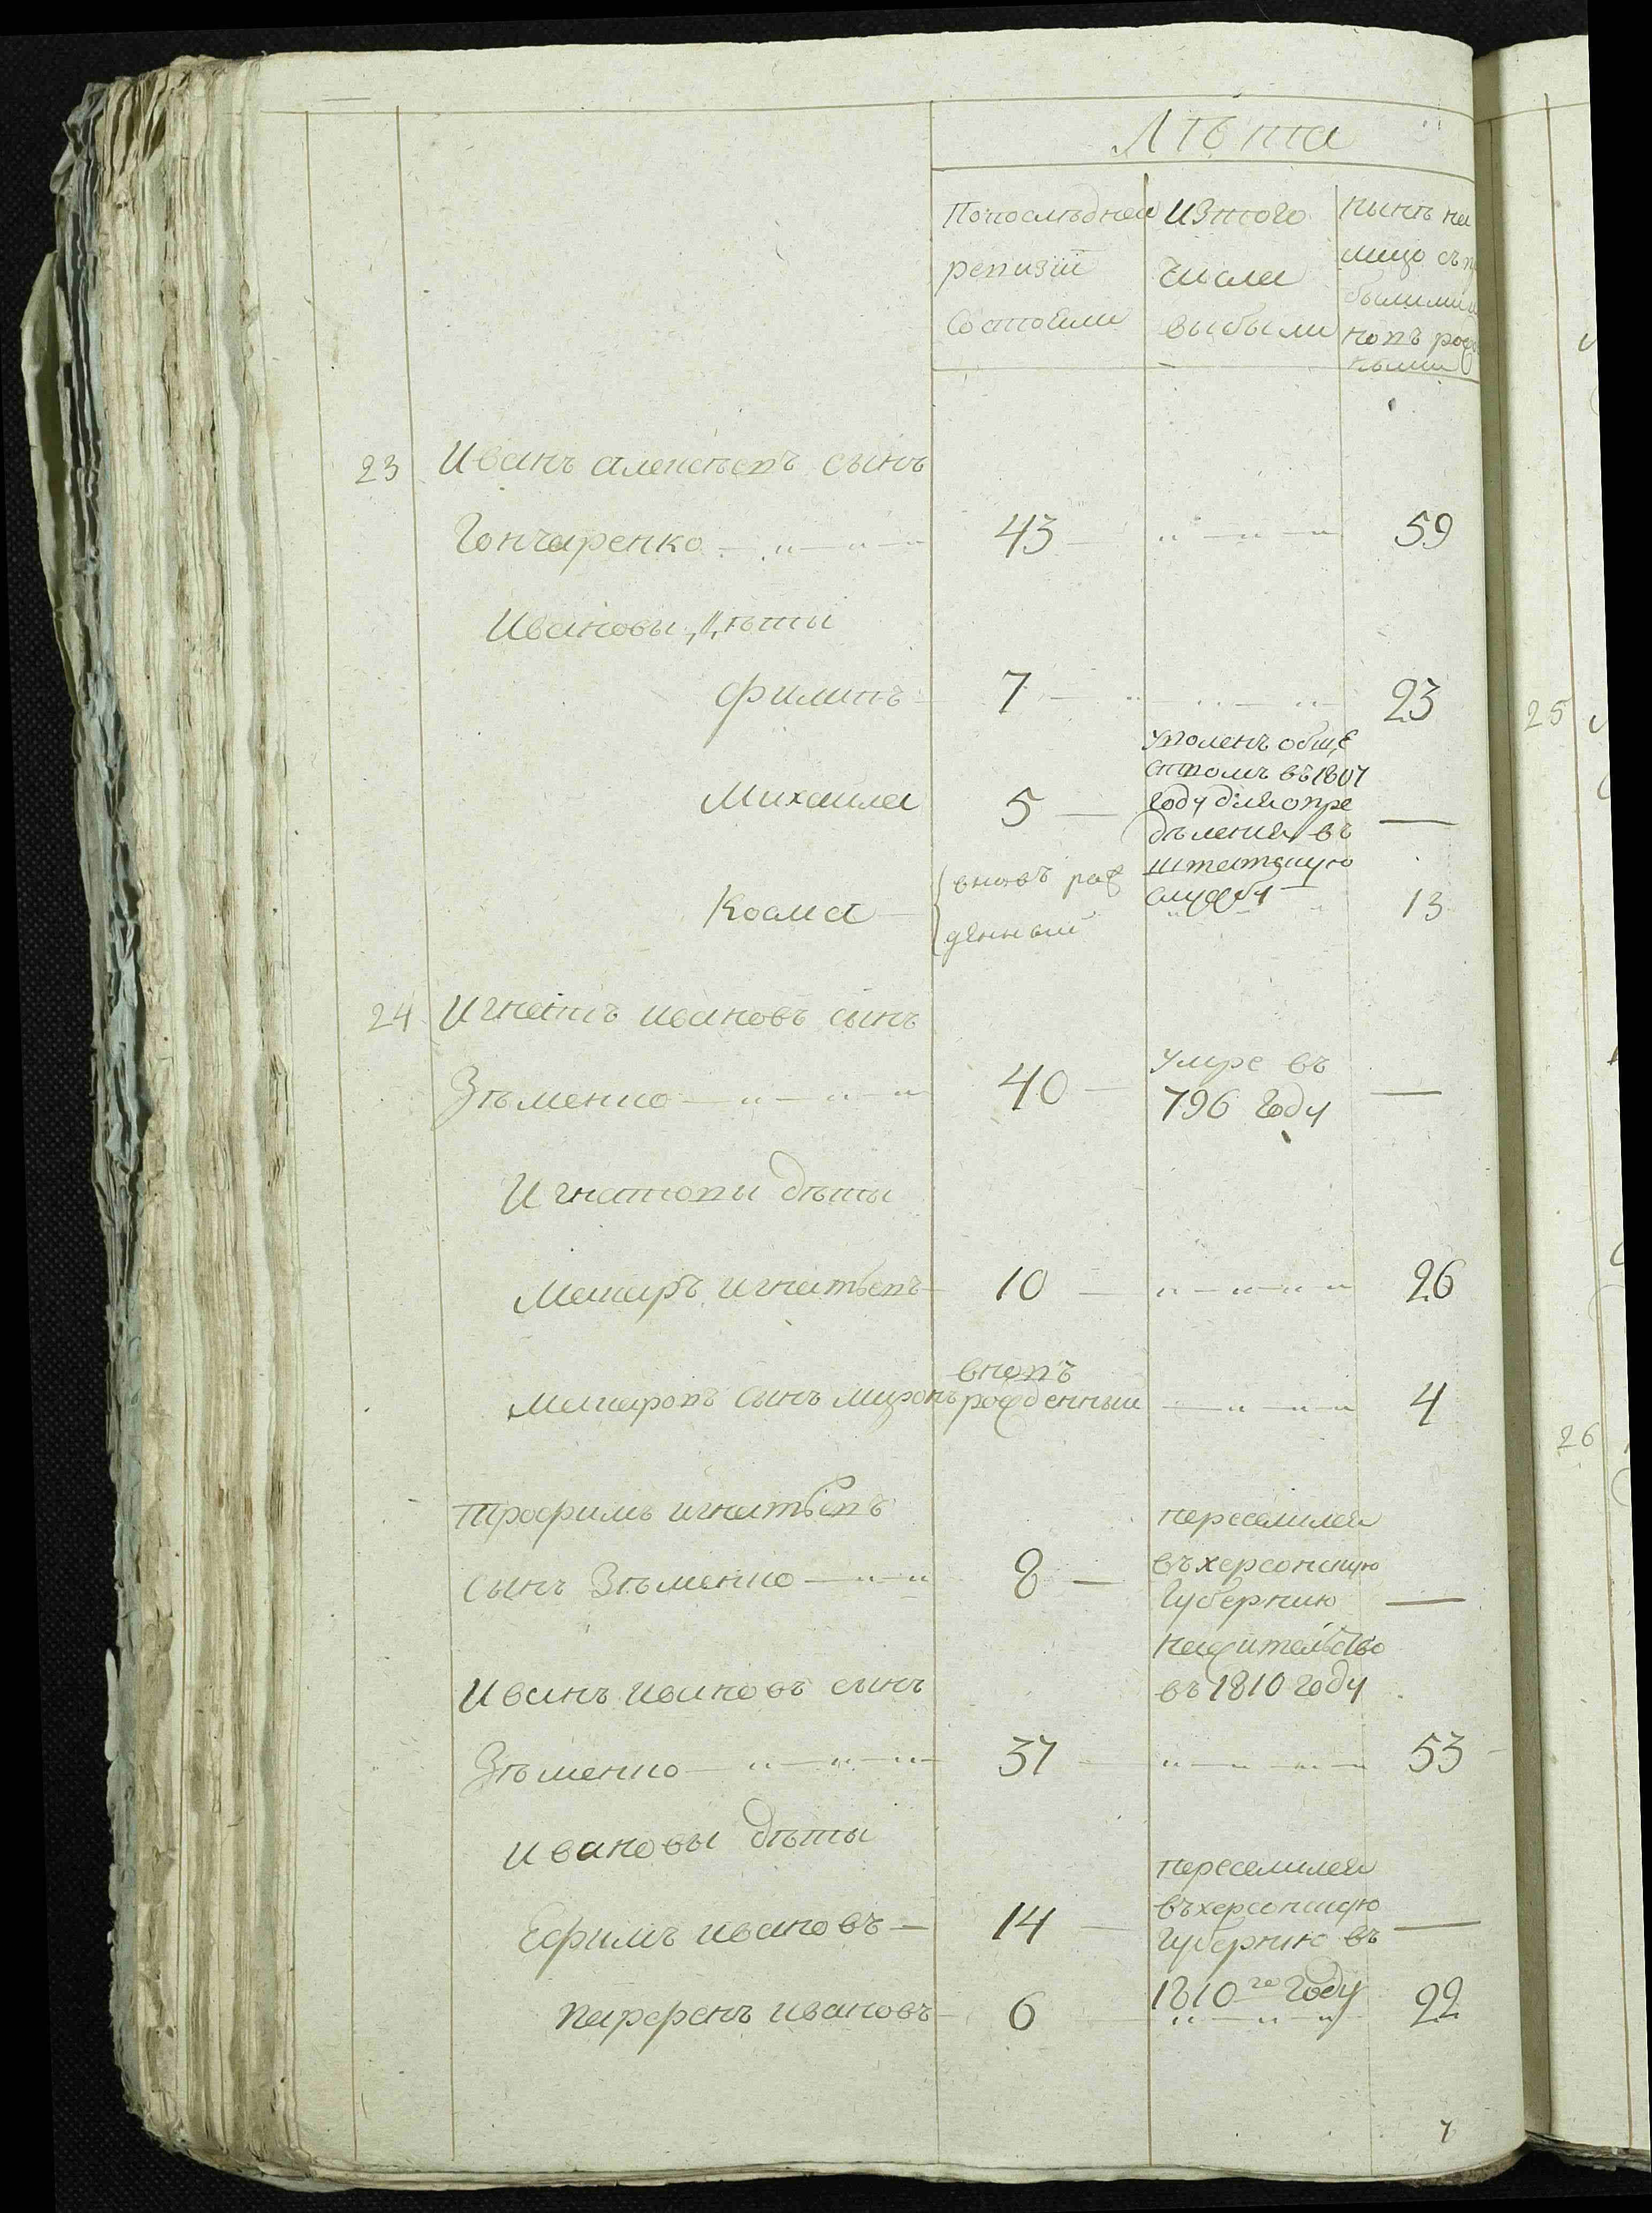 Лѣта
Попослѣдней
ревизіи
состояли
Изтого
числа
выбыли
Нынѣ на
лицо съ п
былыми и
новъ рож
ными
23 Иванъ алексѣевъ сынъ
Гончаренко 43 59
Ивановы дѣти
Филипъ 7 23
Михайла 5 —
уволенъ обще
ствомъ въ 1807
году дляопре
дѣления въ
штатскую
службу
Козма
вновь рож
денный
13
24 Игнатъ ивановъ сынъ
Зѣменко 40 —
умре въ
796 году
Игнатовы дѣти
Макаръ игнатьевъ 10 26
Макаровъ сынъ миронъ
вновь
рожденный
4
Трофимъ игнатьевъ
сынъ Зѣменко 8 —
переселился
въ херсонскую
Губернию
нажительство
въ 1810 году
Иванъ ивановъ сынъ
Зѣменко 37 53
Ивановы дѣти
Ефимъ ивановъ — 14 —
переселился
въ херсонскую
Губернию въ
1810го Году
Парфенъ ивановъ 6 22
25
26